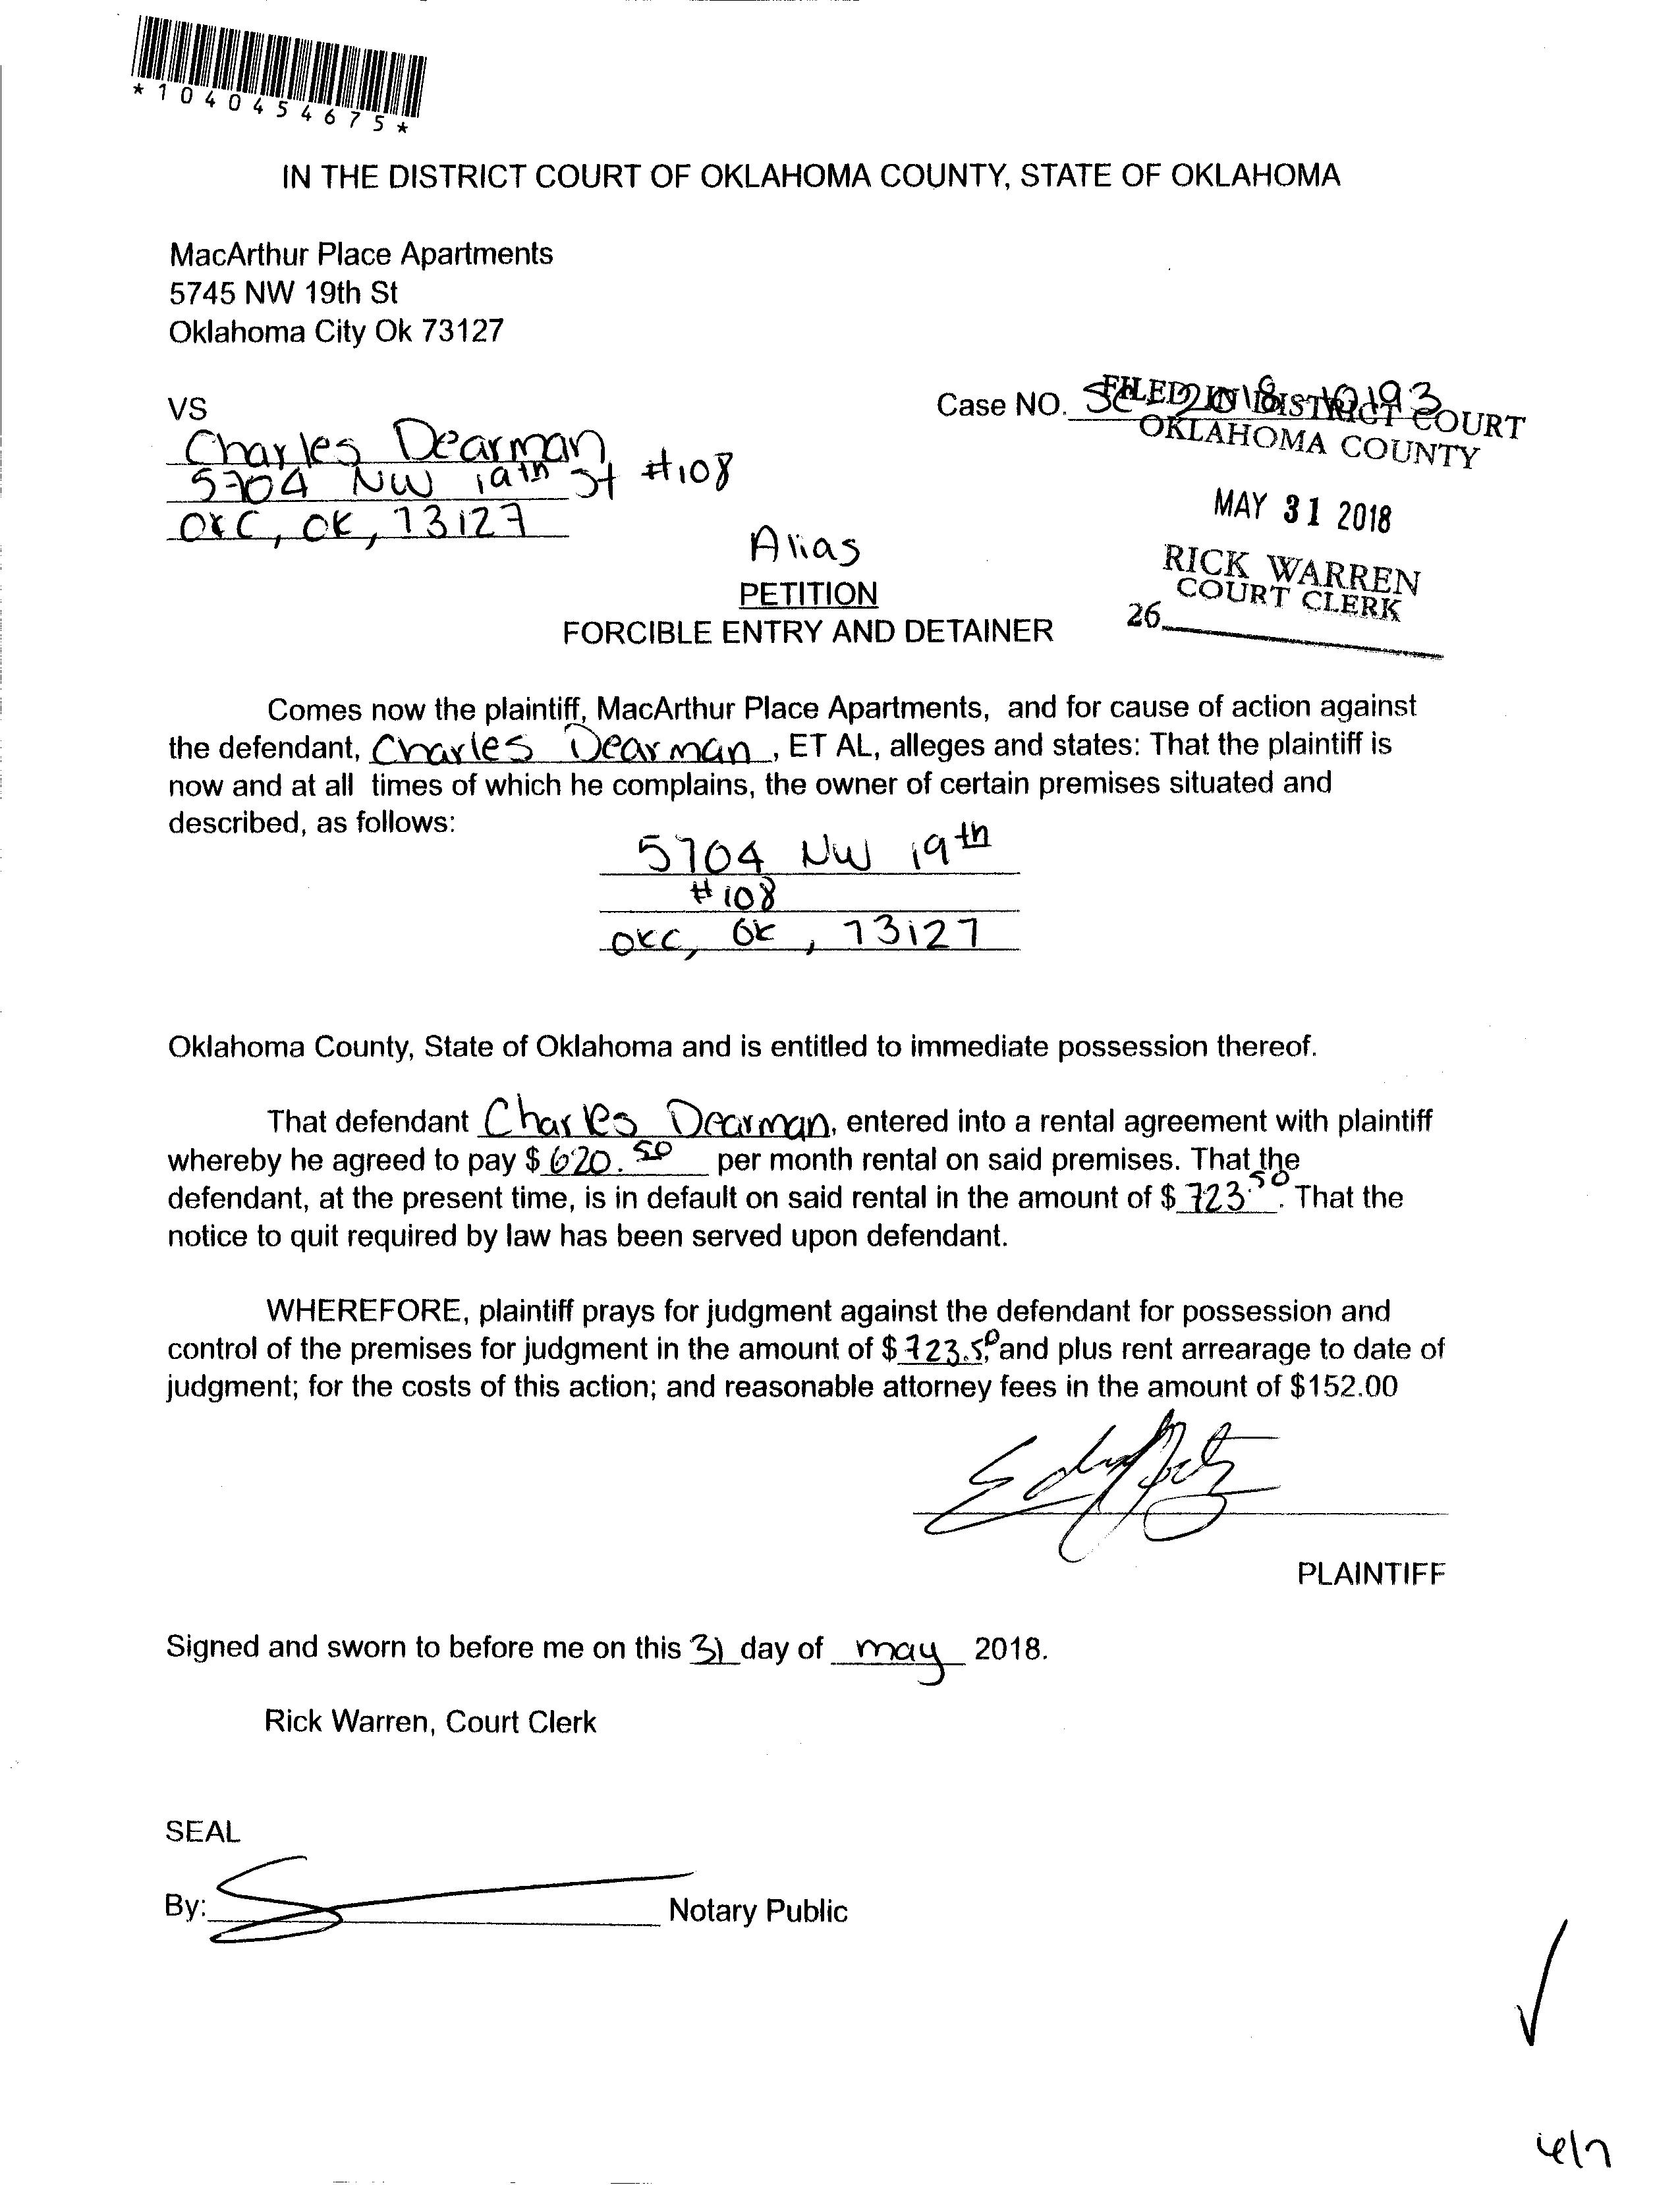 *1040454675*
IN THE DISTRICT COURT OF OKLAHOMA COUNTY, STATE OF OKLAHOMA
MacArthur Place Apartments
5745 NW 19th St
Oklahoma City Ok 73127
VS
Case NO. SC-2018-10193
FILED IN DISTRICT COURT
OKLAHOMA COUNTY
Charles Dearman
5704 NW 19th St #108
OKC, OK, 73127
MAY 31 2018
RICK WARREN
COURT CLERK
26
Alias
PETITION
FORCIBLE ENTRY AND DETAINER
Comes now the plaintiff, MacArthur Place Apartments, and for cause of action against
the defendant, Charles Dearman, ET AL, alleges and states: That the plaintiff is
now and at all times of which he complains, the owner of certain premises situated and
described, as follows:
5704 NW 19th
#108
OKC, OK, 73127
Oklahoma County, State of Oklahoma and is entitled to immediate possession thereof.
That defendant Charles Dearman, entered into a rental agreement with plaintiff
whereby he agreed to pay $ 620.50 per month rental on said premises. That the
defendant, at the present time, is in default on said rental in the amount of $ 723.50. That the
notice to quit required by law has been served upon defendant.
WHEREFORE, plaintiff prays for judgment against the defendant for possession and
control of the premises for judgment in the amount of $ 723.50, and plus rent arrearage to date of
judgment; for the costs of this action; and reasonable attorney fees in the amount of $152.00
PLAINTIFF
Signed and sworn to before me on this 31 day of may 2018.
Rick Warren, Court Clerk
SEAL
By: Notary Public